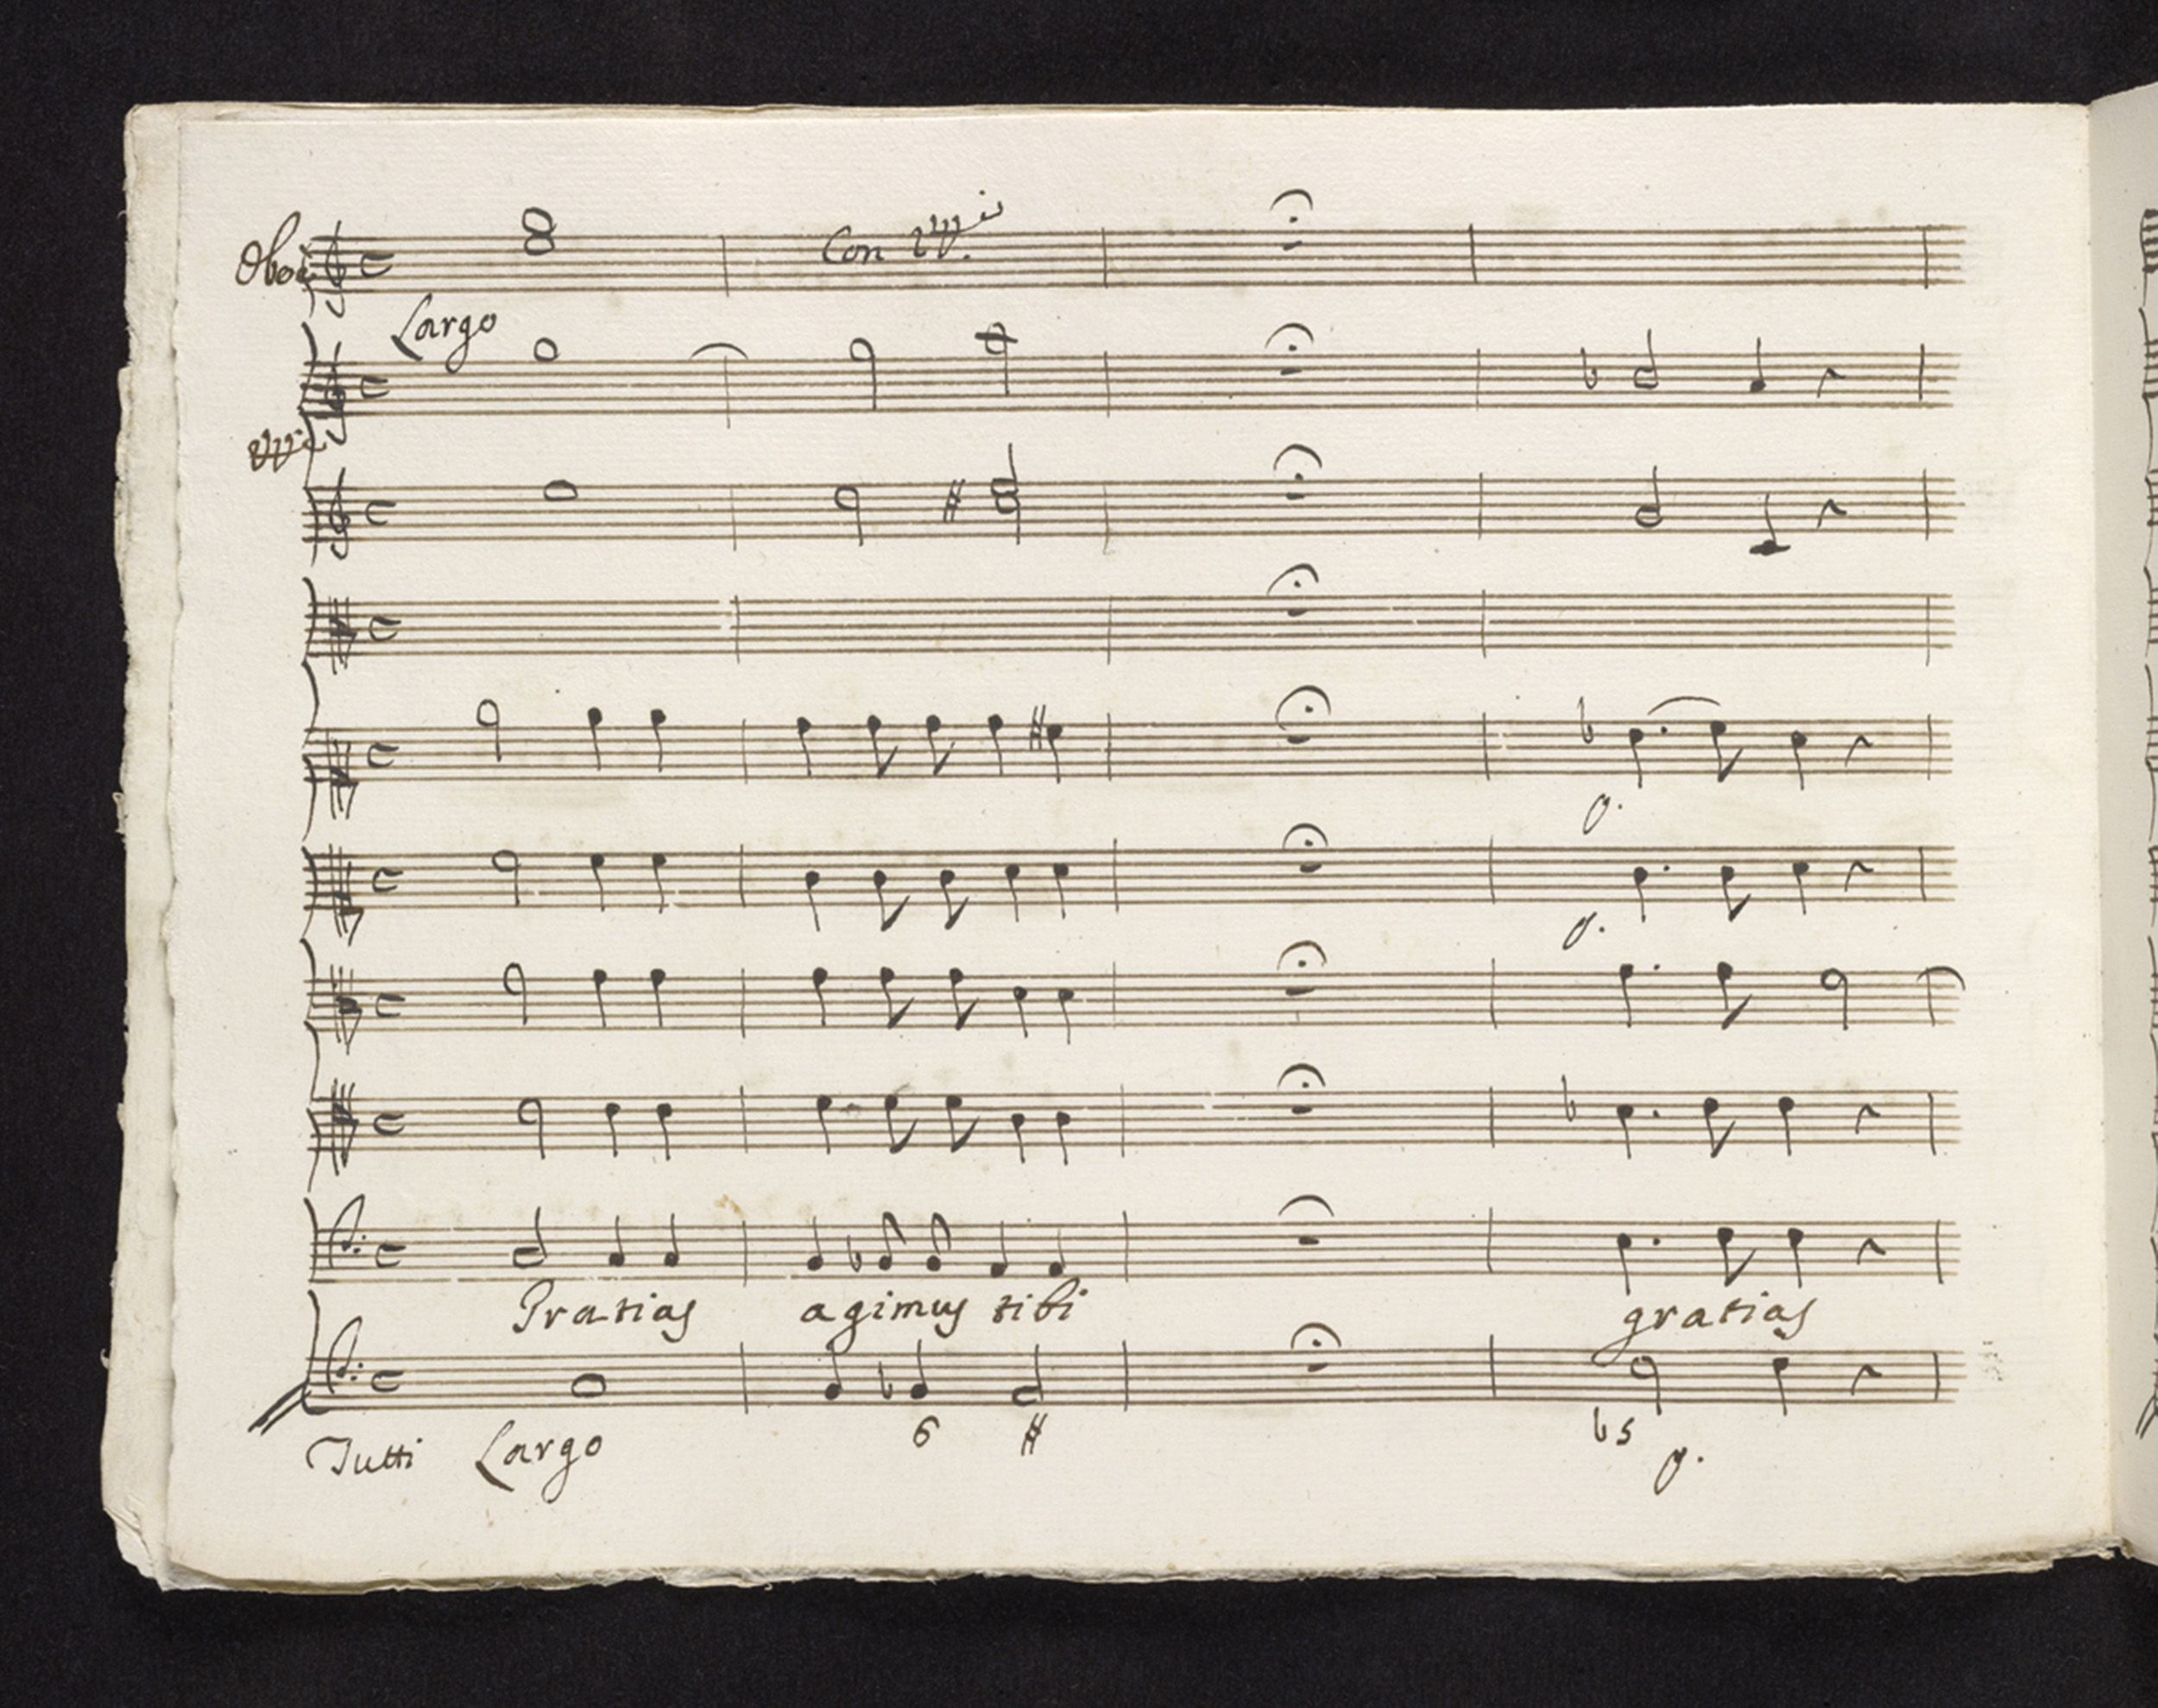 Oboe
Con VVni
Largo
VVni
p.
p.
Gratias agimus tibi gratias
6 # b5
Tutti Largo p.